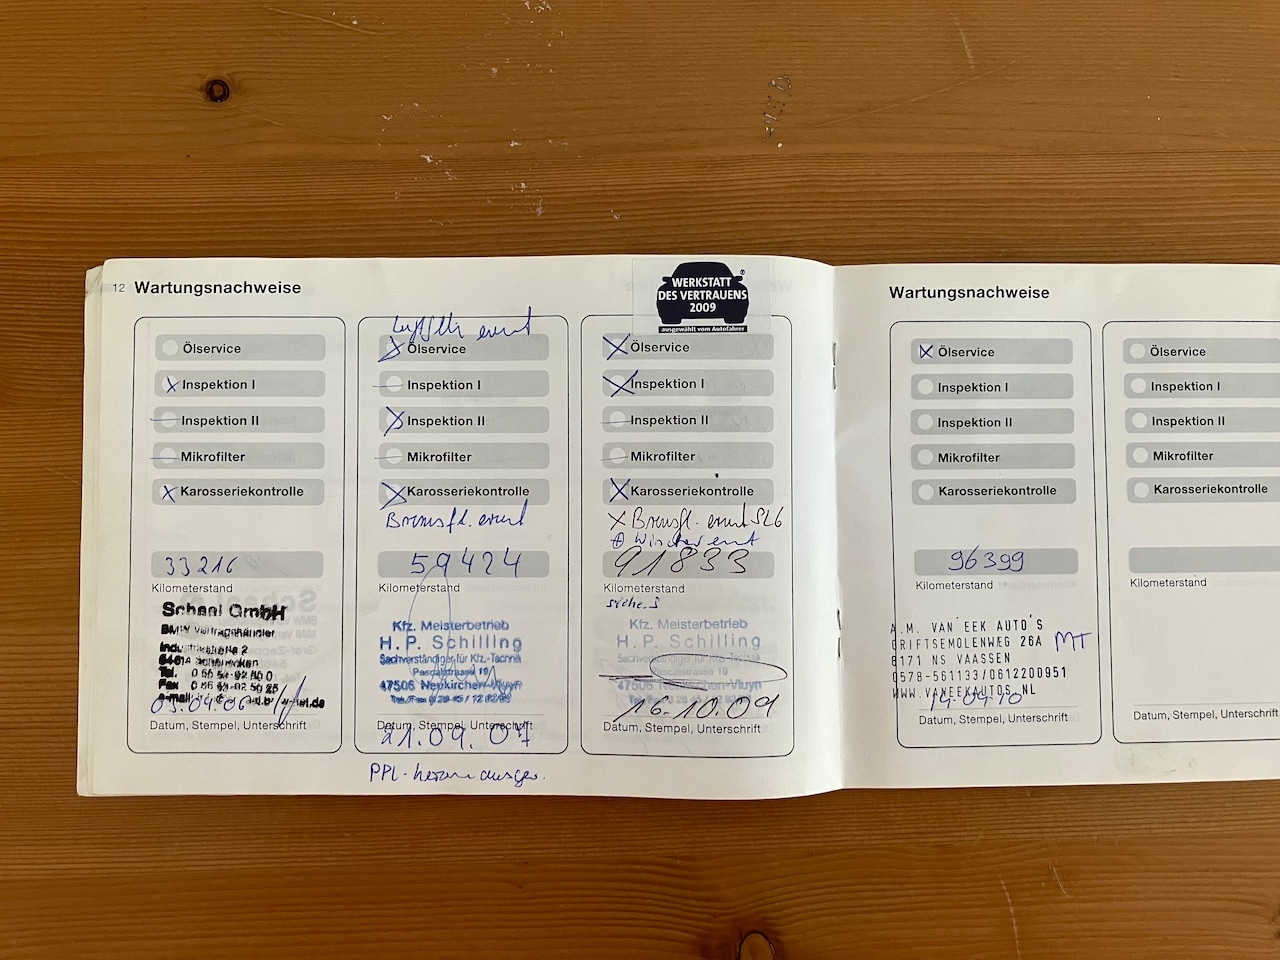 12 Wartungsnachweise
Ölservice
Inspektion I
Inspektion II
Mikrofilter
Karosseriekontrolle
33216
Kilometerstand
Schaal GmbH
BMW Vertragshändler
Industriestraße 2
Tel.
Fax
e-mail:
03.04.06
Datum, Stempel, Unterschrift
Ölservice
Inspektion I
Inspektion II
Mikrofilter
Karosseriekontrolle
Bremsfl. ernt
59424
Kilometerstand
Kfz. Meisterbetrieb
H. P. Schilling
Sachverständiger für Kfz.-Technik
Pascalstrasse 19
47506 Neukirchen-Vluyn
Datum, Stempel, Unterschrift
21.09.07
PPL.
WERKSTATT
DES VERTRAUENS
2009
ausgewählt vom Autofahrer
Ölservice
Inspektion I
Inspektion II
Mikrofilter
Karosseriekontrolle
X Bremsfl. ernt SL6
Wischer ernt
91833
Kilometerstand
Kfz. Meisterbetrieb
H. P. Schilling
Sachverständiger für Kfz.-Technik
Pascalstrasse 19
47506 Neukirchen-Vluyn
16.10.09
Datum, Stempel, Unterschrift
Wartungsnachweise
Ölservice
Inspektion I
Inspektion II
Mikrofilter
Karosseriekontrolle
96399
Kilometerstand
A.M. VAN EEK AUTO'S
DRIFTSEMOLENWEG 26A MT
8171 NS VAASSEN
0578-561133/0612200951
WWW.VANEEKAUTOS.NL
19-04-10
Datum, Stempel, Unterschrift
Ölservice
Inspektion I
Inspektion II
Mikrofilter
Karosseriekontrolle
Kilometerstand
Datum, Stempel, Unterschrift